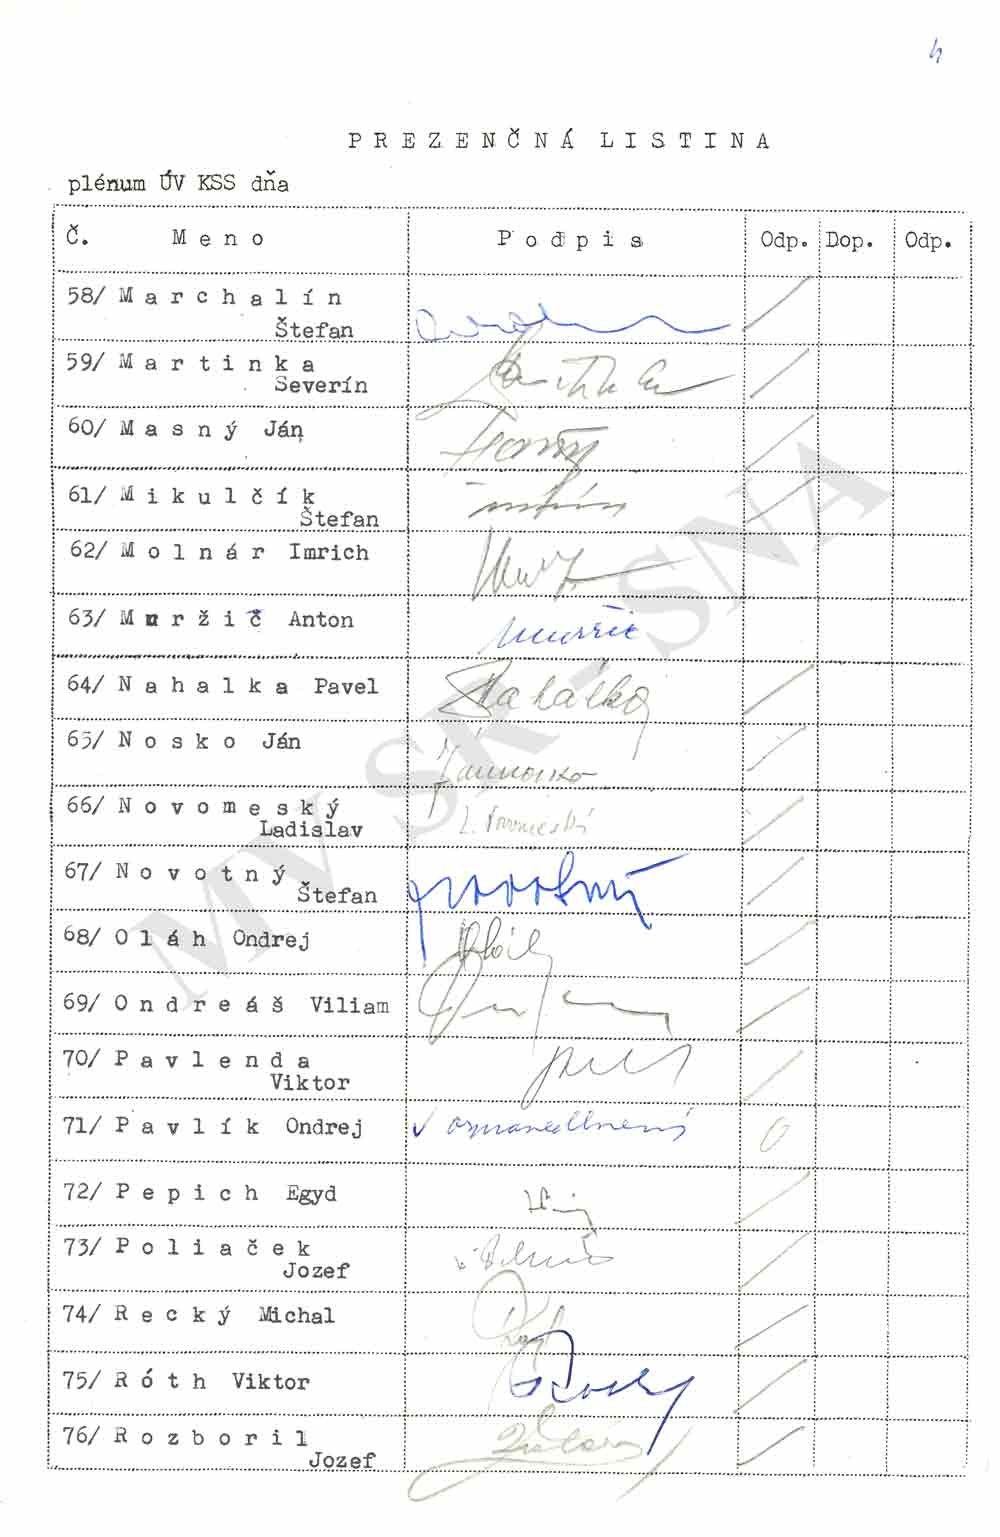 4
PREZENČNÁ LISTINA
plénum ÚV KSS dňa
Č. Meno Podpis Odp. Dop. Odp.
58/ Marchalín
Štefan
59/ Martinka
Severín
60/ Masný Ján
61/ Mikulčík
Štefan
62/ Molnár Imrich
63/ Muržič Anton Muržic
64/ Nahalka Pavel Nahalka
65/ Nosko Ján Ján Nosko
66/ Novomeský
Ladislav L. Novomeský
67/ Novotný
Štefan Novotný
68/ Oláh Ondrej Oláh
69/ Ondreáš Viliam
70/ Pavlenda
Viktor
71/ Pavlík Ondrej ospravedlnený 0
72/ Pepich Egyd
73/ Poliaček
Jozef
74/ Recký Michal
75/ Róth Viktor
76/ Rozboril
Jozef
MV SR - SNA